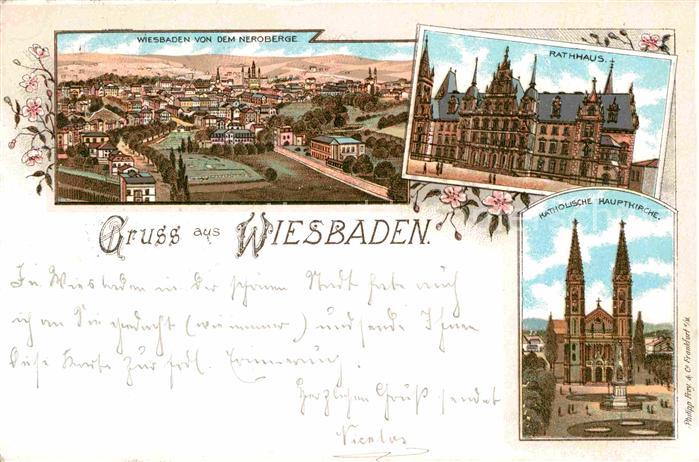 WIESBADEN VON DEM NEROBERGE
RATHHAUS.
KATHOLISCHE HAUPTKIRCHE.
Gruss aus WIESBADEN.
In Wiesbaden in der schönen Stadt habe auch
ich an Sie gedacht (wie immer) und sende Ihnen
diese Karte zur frdl. Erinnerung.
Herzlichen Gruß sendet
Nicolas
Philipp Frey & Co Frankfurt a/M.